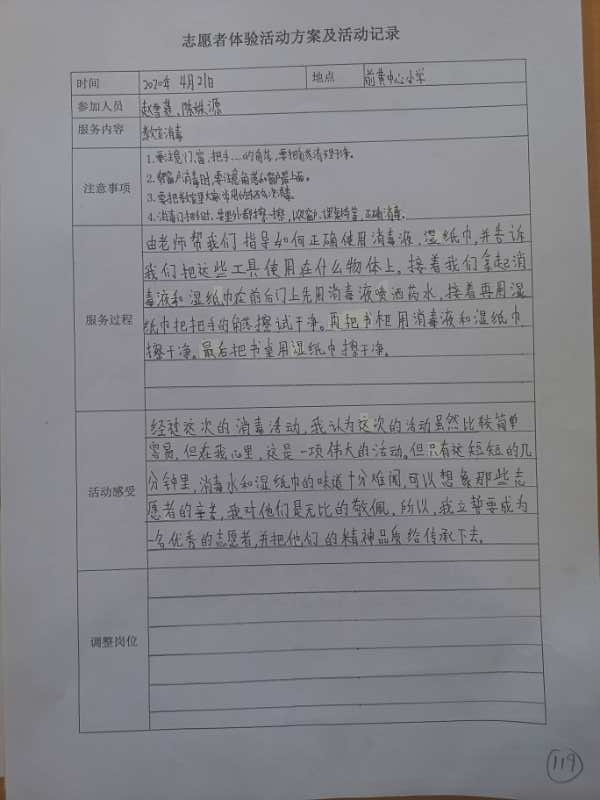 志愿者体验活动方案及活动记录
时间 2020年 4月21日 地点 前黄中心小学
参加人员 赵 陈 源
服务内容 教室消毒
注意事项
1.要注意门、窗、把手……的角落,要把角落清理干净。
2. 窗户消毒时,要注意角落和窗户最上面。
3.要把教室里大家常用的 消毒。
4.消毒门 时,要里外都擦一擦, 正确消毒。
服务过程
由老师帮我们指导如何正确使用消毒液、湿纸巾,并告诉
我们把这些工具使用在什么物体上。接着我们拿起消
毒液和湿纸巾在前后门上先用消毒液喷洒药水,接着再用湿
纸巾把把手的角落擦试干净。再把书柜用消毒液和湿纸巾
擦干净。最后把书桌用湿纸巾擦干净。
活动感受
经过这次的消毒活动,我认为这次的活动虽然比较简单
容易,但在我心里,这是一项伟大的活动。但只有这短短的几
分钟里,消毒水和湿纸巾的味道十分难闻,可以想象那些志
愿者的辛苦,我对他们是无比的敬佩。所以,我立誓要成为
一名优秀的志愿者,并把他们的精神品质给传承下去。
调整岗位
119